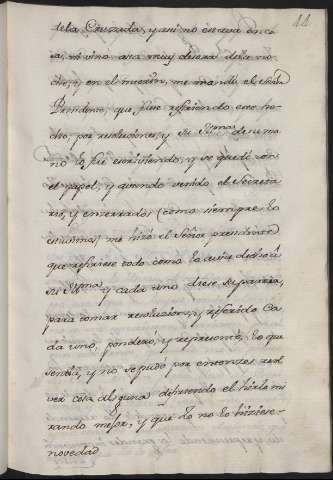 11
dela Cruzada, y asi no estuvo en ca
sa, ni vino asta muy desora dela no
che, y en el meson, me mando el Señor
Presidente, que fuese refiriendo este he
cho, por resoluciones, y su Yllma. de su ma
no lo fue escriuiendo, y se quedó con
el papel, y quando venido el Secreta
rio, y encerrados (como siempre lo
estuvimos) me hizo el Señor Presidente
que refiriese todo como lo auia dicho a
su Yllma. y cada uno diese su parecer,
para tomar resolucion, y referido Ca
da uno, ponderó, y representó, lo que
sentia, y no se pudo por entonces resol
ver cosa alguna difiriendo el hirlo mi
rando mejor, y que Yo no lo hiciese
novedad